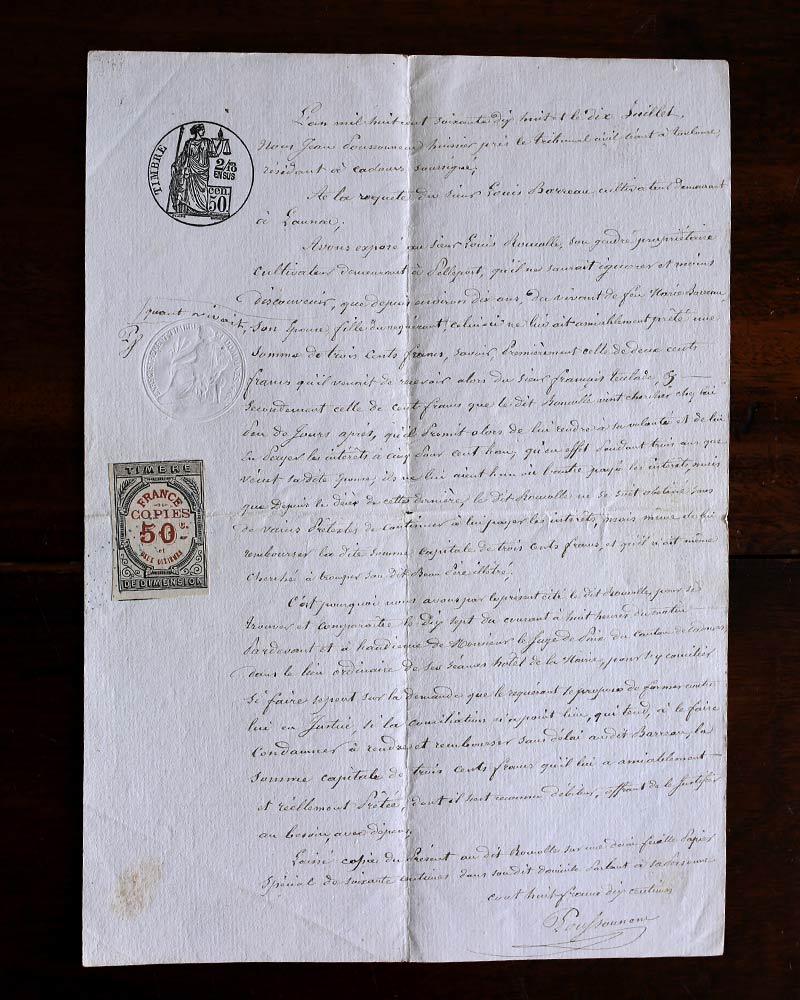 TIMBRE
2/10
EN SUS
50
cen.
L'an mil huit cent soixante dix huit et le dix Juillet,
Nous Jean huissier près le tribunal civil séant à toulouse,
résidant à cadours soussigné;
A la requête du sieur Louis Barreau cultivateur demeurant
à Launac;
Avons exposé au sieur Louis Rouolle, son gendre propriétaire
cultivateur demeurant à Pelleport, qu'il ne saurait ignorer et moins
disconvenir, que depuis environ dix ans, du vivant de feu Marie Barreau,
son épouse fille du requérant, celui ci ne lui ait amiablement prêté une
somme de trois cents francs, savoir, Premièrement celle de deux cents
francs qu'il venait de recevoir alors du sieur français
Secondement celle de cent francs que le dit Rouolle vint chercher chez lui
Peu de Jours après, qu'il Promit alors de lui rendre à sa volonté et de lui
en Payer les intérêts à cinq Pour cent l'an, qu'en effet Pendant trois ans que
vécut sa dite épouse, ils ne lui aient l'un ou l'autre payé les intérêts, mais
que Depuis le décès de cette dernière, le dit Rouolle ne se soit obstiné sous
de vains Prétextes de continuer à lui payer les intérêts, mais même de lui
rembourser la dite somme capitale de trois cents francs, et qu'il n'ait même
cherché à tromper son dit Beau Père
C'est pourquoi nous avons par le présent cité le dit Rouolle, pour se
trouver et comparaître le Dix sept du courant à huit heures du matin
Pardevant et à l'audience de Monsieur le Juge de Paix du canton de cadours,
dans le lieu ordinaire de ses séances hôtel de la Mairie, pour s'y concilier
si faire se peut sur la demande que le requérant se propose de former contre
lui en Justice, si la conciliation n'y avait lieu, qui tend, à le faire
condamner à rendre et rembourser sans délai au dit Barreau, la
somme capitale de trois cents francs qu'il lui a amiablement
et réellement Prêtée, dont il s'est reconnu débiteur, offrant de le Justifier
au besoin, avec dépens;
Laissé copie du Présent au dit Rouolle sur une demi feuille Papier
spécial de soixante centimes dans son dit domicile Parlant à sa personne
cout huit francs dix centimes
TIMBRE
FRANCE
COPIES
50 c
et
DEUX DIXIEMES
DE DIMENSION